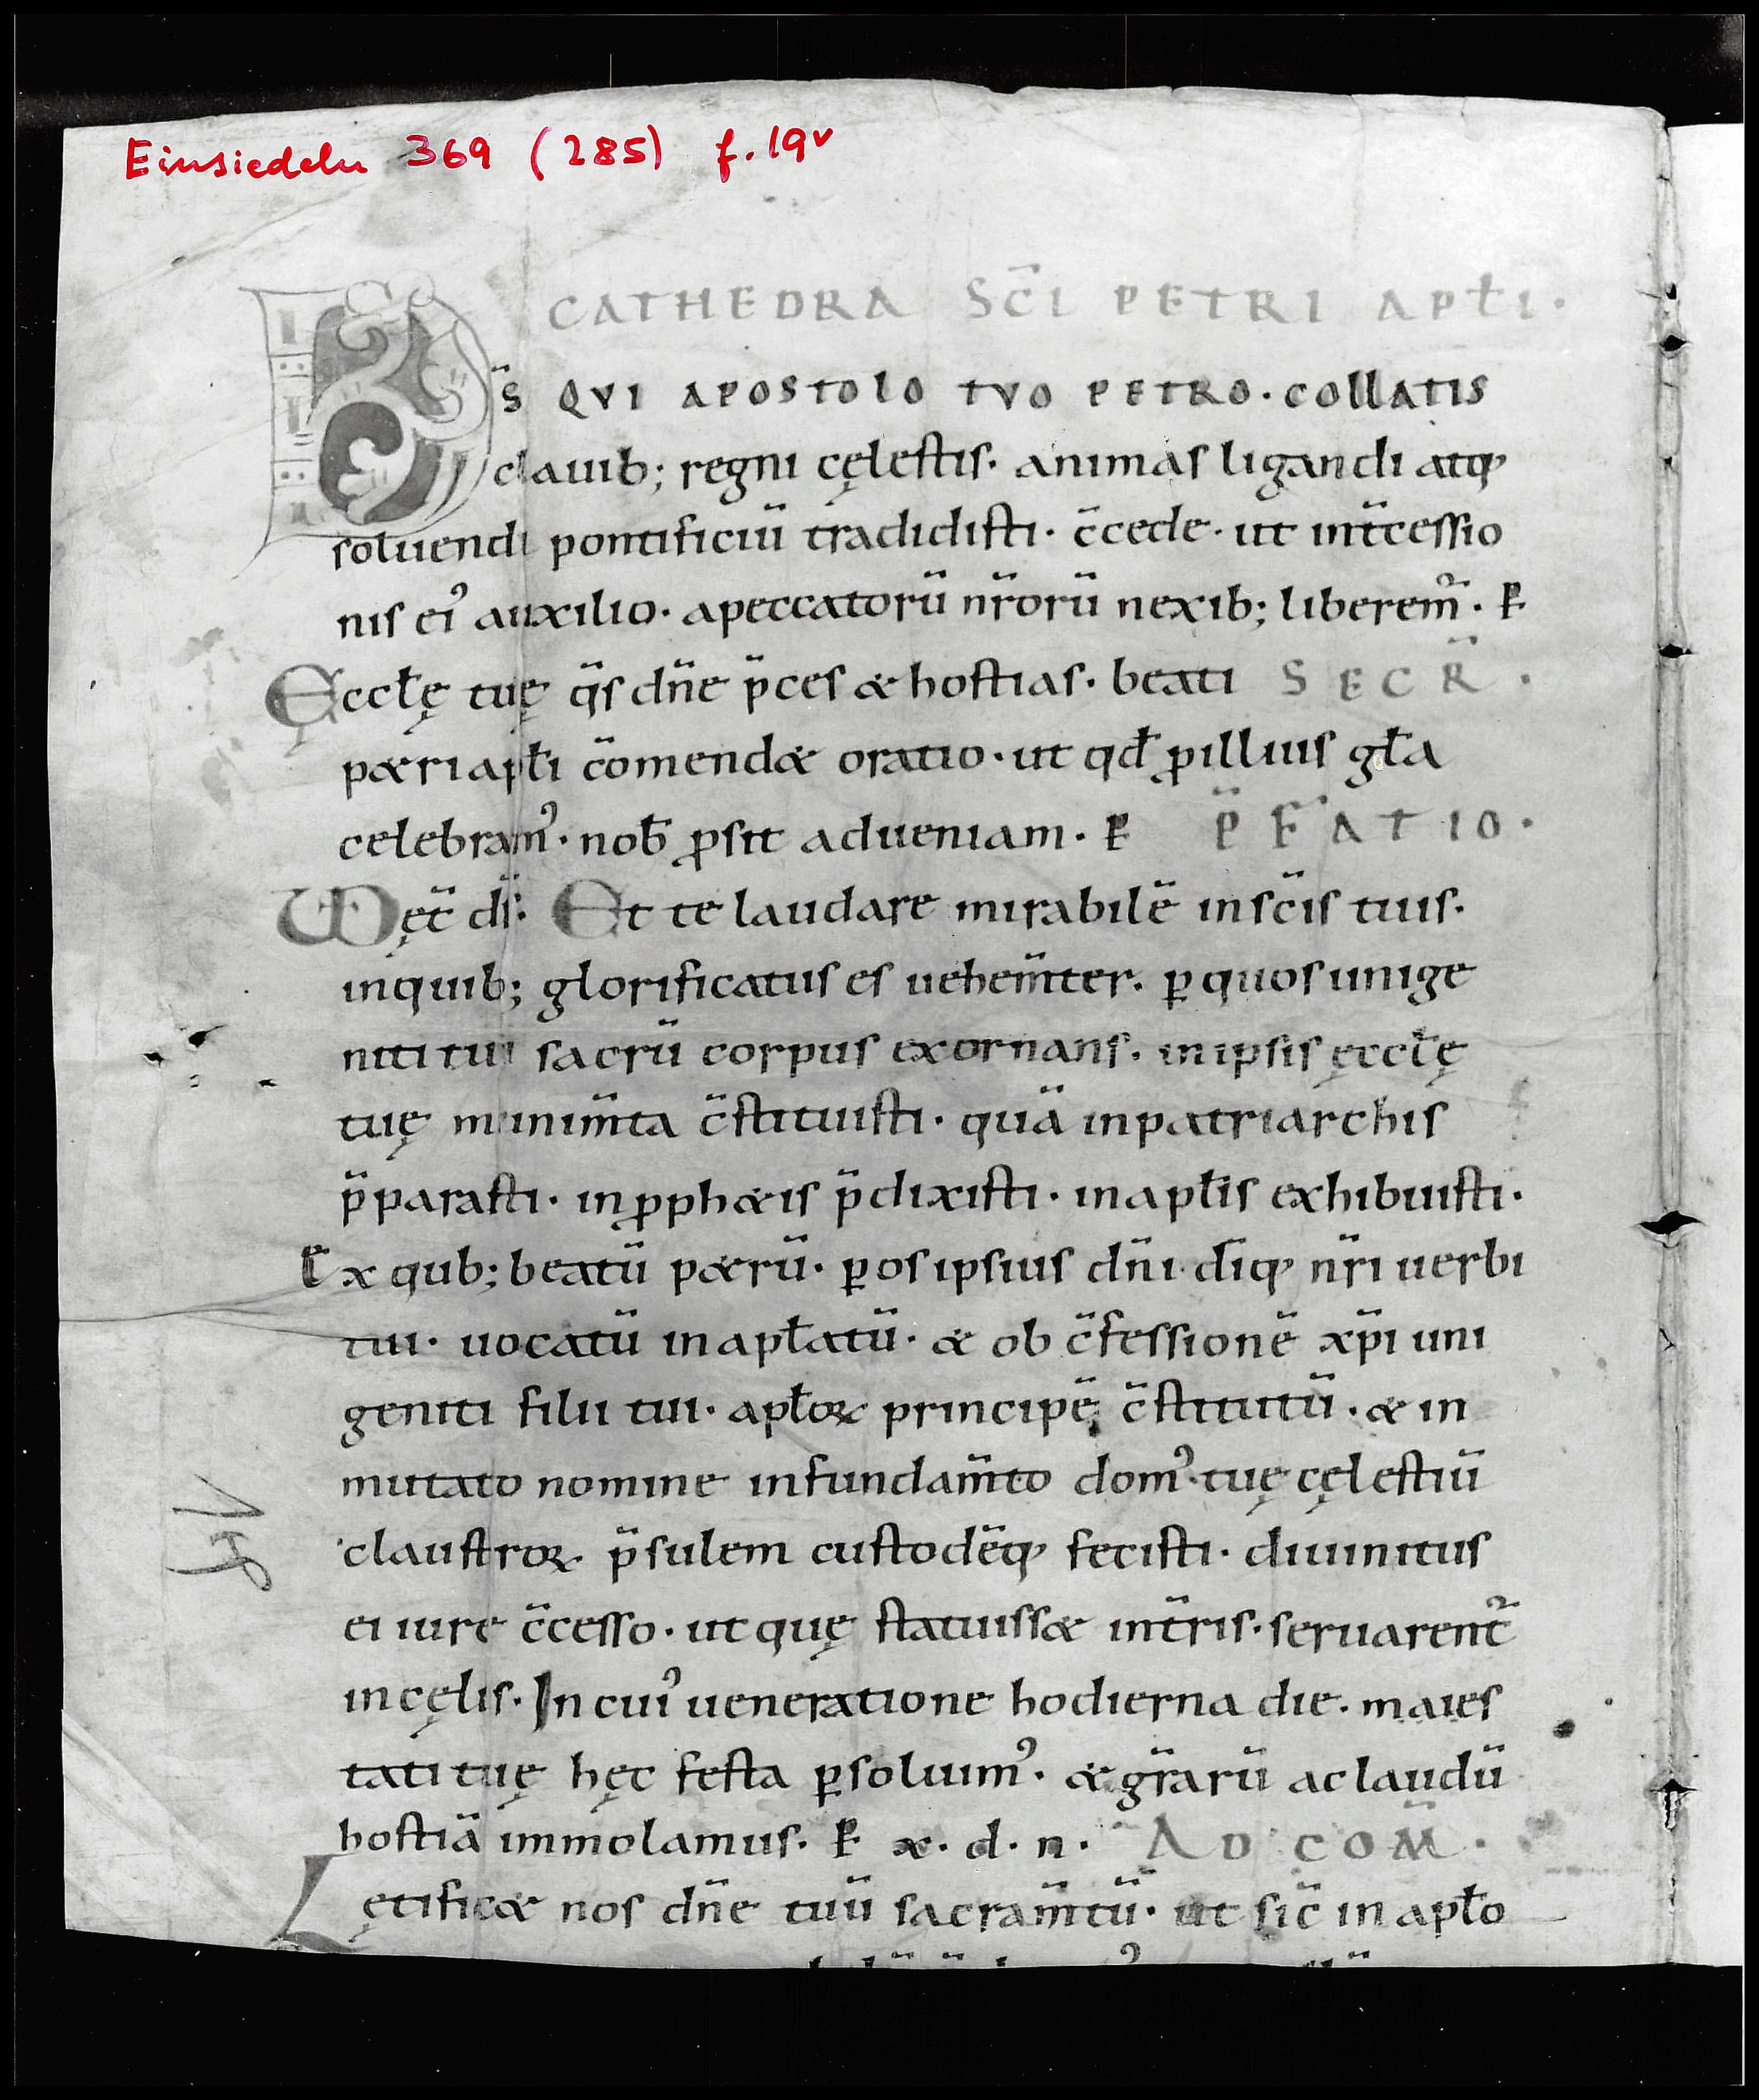 Einsiedeln 369 (285) f. 19v
CATHEDRA SC̄I PETRI APŁI·
D̄S QVI APOSTOLO TVO PETRO· COLLATIS
clauib; regni cęlestis· animas ligandi atq;
soluendi pontificiū tradidisti· c̄cede· ut int̄cessio
nis ei᾿ auxilio· apeccatorū nr̄orū nexib; liberem᾿· P̱
Ęccłę tuę q̄s dn̄e p̄ces & hostias· beati SECR̄·
p&ri apłi c̄omend& oratio· ut qd̄ ꝑillius gła
celebram᾿· nob̄ ꝓsit adueniam· P̱ P̄FATIO·
VD ęc̄ ds̄· Et te laudare mirabilē insc̄is tuis·
inquib; glorificatus es uehem̄ter· ꝑ quos unige
niti tui sacrū corpus exornans· inipsis ęccłę
tuę munim̄ta c̄stituisti· quā inpatriarchis
p̄parasti· inꝓph&is p̄dixisti· inapłis exhibuisti·
Ex qub; beatū p&rū· ꝑ os ipsius dn̄i dīq; nr̄i uerbi
tui· uocatū inapłatū· & ob c̄fessionē xp̄i uni
geniti filii tui· apłoꝝ principē c̄stitutū· & in
mutato nomine infundam̄to dom᾿ tuę cęlestiū
claustroꝝ p̄sulem custodēq; fecisti· diuinitus
ei iure c̄cesso· ut quę statuiss& int̄ris· seruarent᾿
incęlis· In cui᾿ ueneratione hodierna die· maies
tati tuę hęc festa ꝑsoluim᾿· & gr̄arū aclaudū
hostiā immolamus· P̱ x· d· n· AD COM̄·
Lętific& nos dn̄e tuū sacram̄tū· ut sic̄ in apło